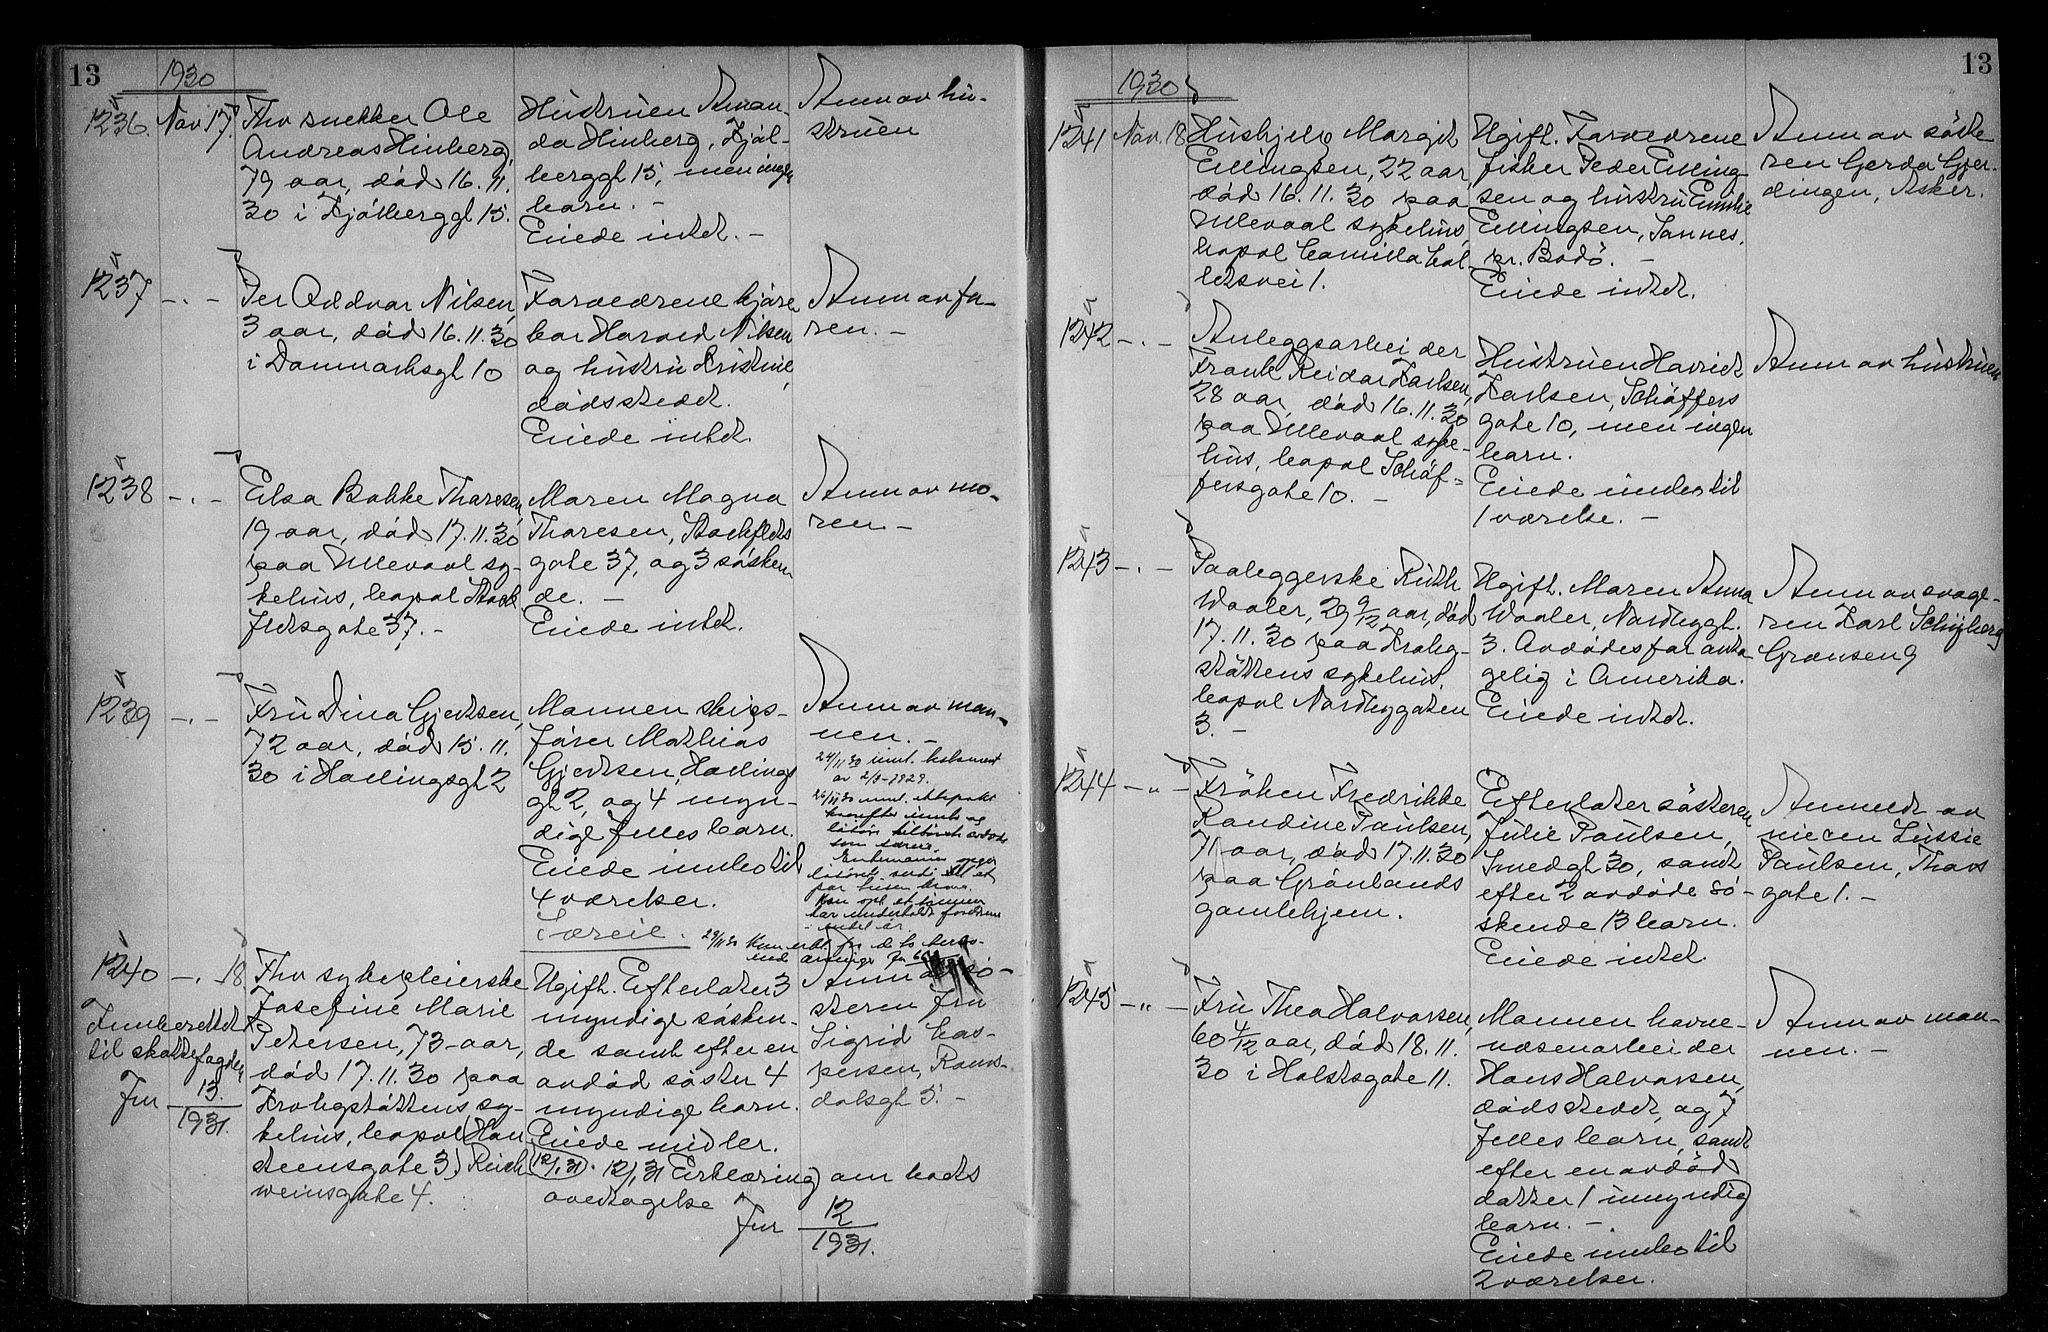 13
1930
1236. Nov 17.
Fhv snekker Ole
Andreas Hinberg,
79 aar, död 16.11.
30 i Kjölberggt 15.
Hustruen Aman-
da Hinberg, Kjöl-
berggt 15, men ingen
barn. –
Eiede intet. –
Anm av hu-
struen
1237 –.–
Per Oddvar Nilsen,
3 aar, död 16.11.30
i Danmarksgt 10
Forældrene kjöre
kar Harald Nilsen
og hustru Kristine,
dödsstedet.
Eiede intet.
Anm av fa-
ren. –
1238 –.–
Elsa Bakke Thoresen,
19 aar, död 17.11.30
paa Ullevaal sy-
kehus, bopæl Stock
fletsgate 37. –
Maren Magna
Thoresen, Stockflets
gate 37, og 3 sösken-
de. –
Eiede intet.
Anm av mo-
ren –
1239 –.–
Fru Dina Gjertsen,
72 aar, död 15.11.
30 i Hallingsgt 2
Mannen skips-
förer Mathias
Gjertsen, Hallings
gt 2, og 4 myn-
dige felles barn.
Eiede innbo til
4 værelser.
Særeie.
Anm av man-
nen. –
24/11 30 innl. testament
av 2/3-1929.
26/11 30 innl. ektepakt
hvorefter innbo og
lösöre tilhörte avdöde
som særeie.
Enkemannen opgir
lösörets verdi til et
par tusen kroner.
har underholdt foreldrene
1240 –.18
Fhv sykepleierske
Josefine Marie
Petersen, 73 aar,
död 17.11.30 paa
Krohgstöttens sy-
kehus, bopæl (Han
steensgate 3) Reich
weinsgate 4.
Innberettet
til skattefogden
Jnr 13.
1931.
Ugift. Efterlater 3
myndige sösken-
de samt efter en
avdöd söster 4
myndige barn.
Eiede midler.
12/1 31. 12/1 31 Erklæring om boets
overtagelse
Jnr 12
1931.
Anm av sö-
steren fru
Sigrid Cas-
persen, Roms-
dalsgt 5. –
13
1930
1241 Nov. 18
Hushjelp Margit
Ellingsen, 22 aar,
död 16.11.30 paa
Ullevaal sykehus,
bopæl Camilla Col
letsvei 1.
Ugift. Forældrene
fisker Peder Elling-
sen og hustru Emilie
Ellingsen, Sannes,
pr. Bodö. –
Eiede intet.
Anm av söste
ren Gerda Gjer-
dingen, Asker.
1242 –.–
Anleggsarbeider
Frank Reidar Karlsen,
28 aar, död 16.11.30
paa Ullevaal syke-
hus, bopæl Schöf-
fersgate 10. –
Hustruen Harriet
Karlsen, Schöffers
gate 10, men ingen
barn.
Eiede innbo til
1 værelse. –
Anm av hustruen
1243 –.–
Paaleggerske Ruth
Waaler, 29 9/12 aar, död
17.11.30 paa Krohg-
stöttens sykehus,
bopæl Nordbygaten
3. –
Ugift. Maren Anna
Waaler, Nordbygt.
3. Avdödes far anta
gelig i Amerika.
Eiede intet.
Anm av svoge-
ren Karl Schjberg
Grænsen 9
1244 –"–
Fröken Fredrikke
Randine Paulsen,
71 aar, död 17.11.30
paa Grönlands
gamlehjem.
Efterlater söstren
Julie Paulsen,
Smedgt 30, samt
efter 2 avdöde sö-
skende 13 barn.
Eiede intet
Anmeldt av
niecen Lussie
Paulsen, Thors
gate 1. –
1245 –"–
Fru Thea Halvorsen,
60 4/12 aar, död 18.11.
30 i Holstsgate 11.
Mannen havne-
væsenarbeider
Hans Halvorsen,
dödsstedet, og 7
felles barn, samt
efter en avdöd
datter 1 umyndig
barn. –
Eiede innbo til
2 værelser.
Anm av man-
nen. –